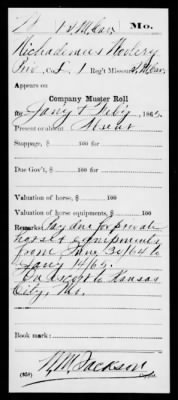 1 S M Cav Mo.
Nichademus Nodery
Priv, Co. F, 1 Reg't Missouri S. M. Cav.
Appears on
Company Muster Roll
for Jany & Feby, 1865.
Present or absent
Stoppage, $ 100 for
Due Gov't, $ 100 for
Valuation of horse, $ 100
Valuation of horse equipments, $ 100
Remarks: Pay due for private
horse & equipments
from June 30/64 to
Jany 14/65.
On Escort to Kansas
City, Mo.
Book mark:
W M Jackson
(858) Copyist.